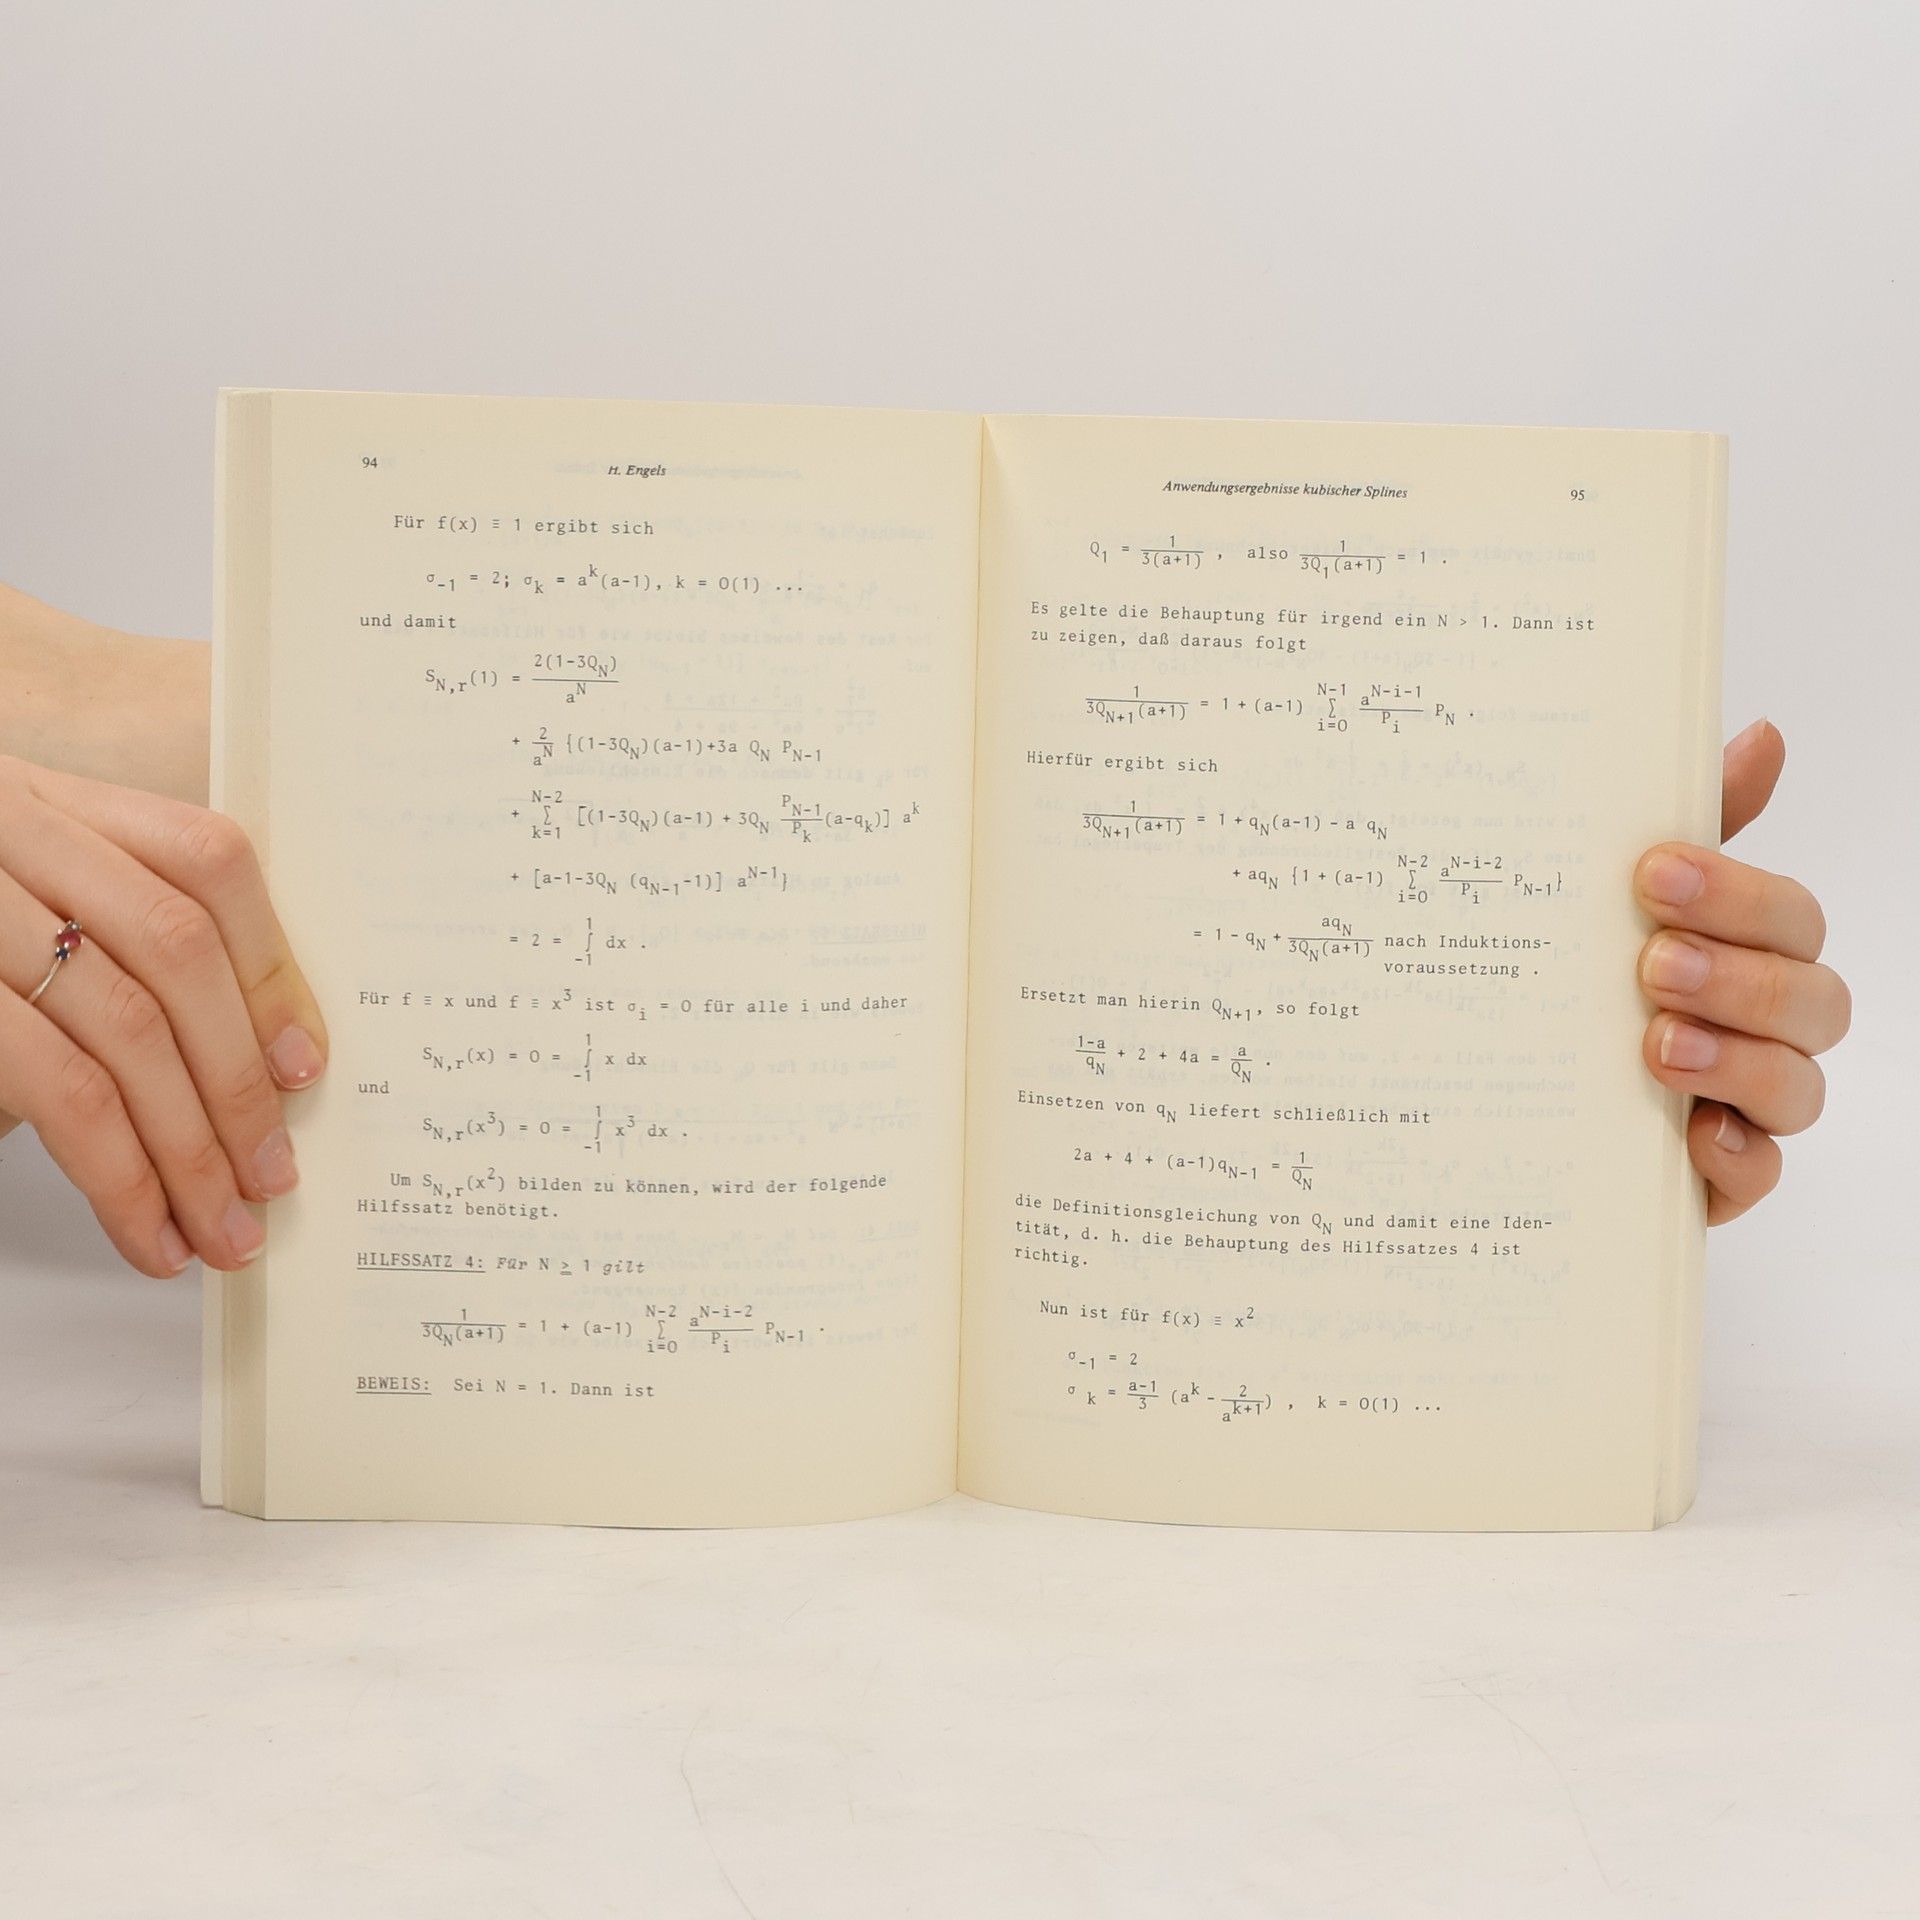 94
H. Engels
Für f(x) ≡ 1 ergibt sich
σ₋₁ = 2; σₖ = aᵏ(a-1), k = 0(1) ...
und damit
S_{N,r}(1) = 2(1-3Q_N)/a^N
+ 2/a^N {(1-3Q_N)(a-1)+3a Q_N P_{N-1}
+ Σ_{k=1}^{N-2} [(1-3Q_N)(a-1) + 3Q_N P_{N-1}/P_k (a-q_k)] a^k
+ [a-1-3Q_N (q_{N-1}-1)] a^{N-1}}
= 2 = ∫_{-1}^{1} dx .
Für f ≡ x und f ≡ x³ ist σ_i = 0 für alle i und daher
S_{N,r}(x) = 0 = ∫_{-1}^{1} x dx
und
S_{N,r}(x³) = 0 = ∫_{-1}^{1} x³ dx .
Um S_{N,r}(x²) bilden zu können, wird der folgende
Hilfssatz benötigt.
HILFSSATZ 4: Für N ≥ 1 gilt
1/(3Q_N(a+1)) = 1 + (a-1) Σ_{i=0}^{N-2} a^{N-i-2}/P_i P_{N-1} .
BEWEIS: Sei N = 1. Dann ist
Anwendungsergebnisse kubischer Splines
95
Q₁ = 1/(3(a+1)) , also 1/(3Q₁(a+1)) = 1 .
Es gelte die Behauptung für irgend ein N > 1. Dann ist
zu zeigen, daß daraus folgt
1/(3Q_{N+1}(a+1)) = 1 + (a-1) Σ_{i=0}^{N-1} a^{N-i-1}/P_i P_N .
Hierfür ergibt sich
1/(3Q_{N+1}(a+1)) = 1 + q_N(a-1) - a q_N
+ aq_N {1 + (a-1) Σ_{i=0}^{N-2} a^{N-i-2}/P_i P_{N-1}}
= 1 - q_N + aq_N/(3Q_N(a+1)) nach Induktions-
voraussetzung .
Ersetzt man hierin Q_{N+1}, so folgt
(1-a)/q_N + 2 + 4a = a/Q_N .
Einsetzen von q_N liefert schließlich mit
2a + 4 + (a-1)q_{N-1} = 1/Q_N
die Definitionsgleichung von Q_N und damit eine Iden-
tität, d. h. die Behauptung des Hilfssatzes 4 ist
richtig.
Nun ist für f(x) ≡ x²
σ₋₁ = 2
σ_k = (a-1)/3 (a^k - 2/a^{k+1}) , k = 0(1) ...